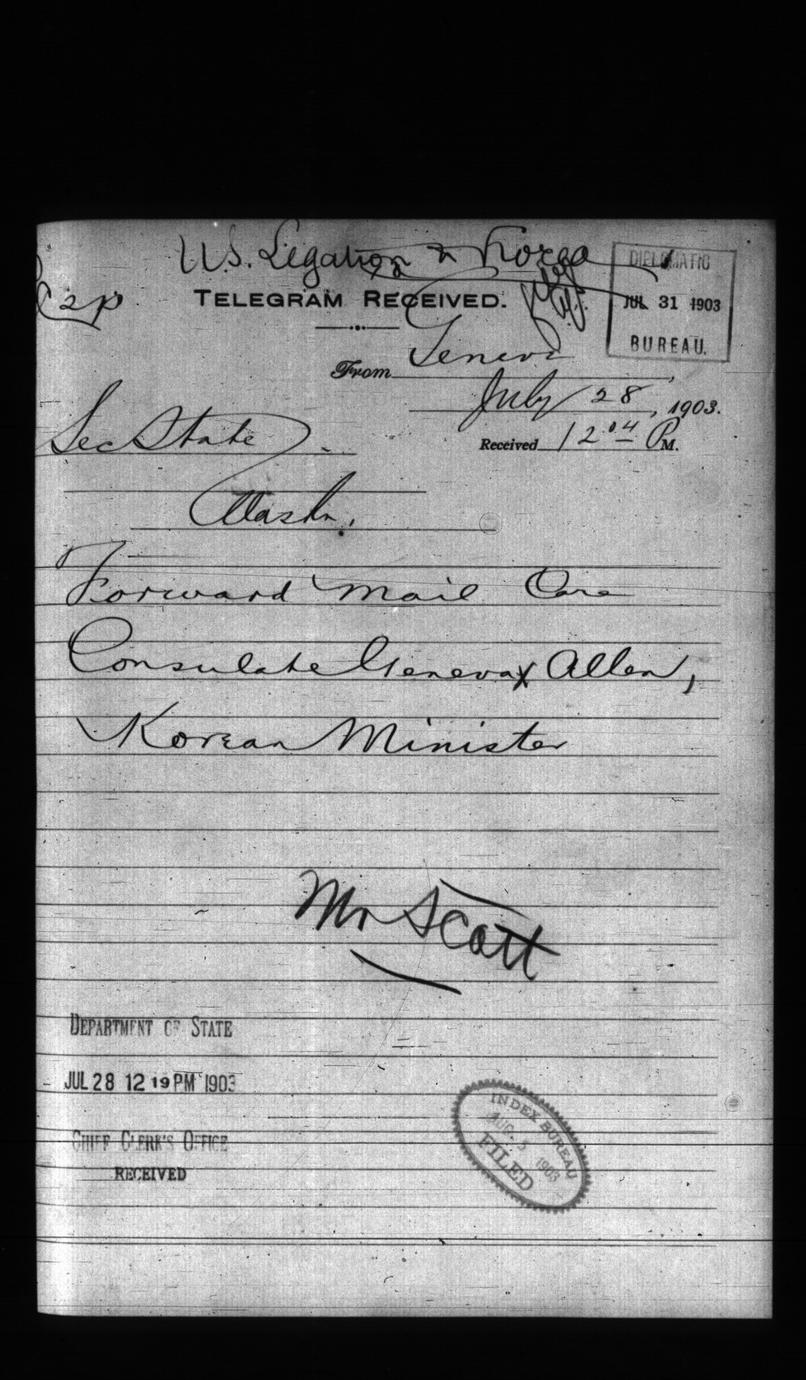 U.S. Legation in Korea
TELEGRAM RECEIVED.
DIPLOMATIC
JUL 31 1903
BUREAU.
From Geneva
July 28, 1903.
Received 12 04 P M.
Sec State
Wash.
Forward mail Care
Consulate Geneva x Allen,
Korean Minister
Mr Scott
DEPARTMENT OF STATE
JUL 28 12 19 PM 1903
CHIEF CLERK'S OFFICE
RECEIVED
INDEX BUREAU
AUG. 5 1903
FILED